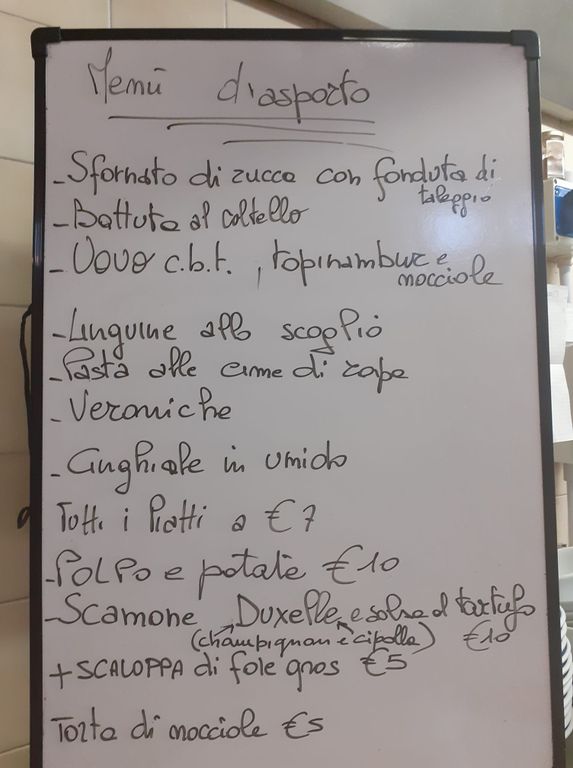 Menù d'asporto
- Sfornato di zucca con fonduta di
taleggio
- Battuta al coltello
- Uovo c.b.t., topinambur e
nocciole
- Linguine allo scoglio
- Pasta alle cime di rape
- Veroniche
- Cinghiale in umido
Tutti i Piatti a €7
- POLPO e patate €10
- Scamone, Duxelle, e salsa al tartufo
(champignon e cipolla) €10
+ SCALOPPA di foie gras €5
Torta di nocciole €5